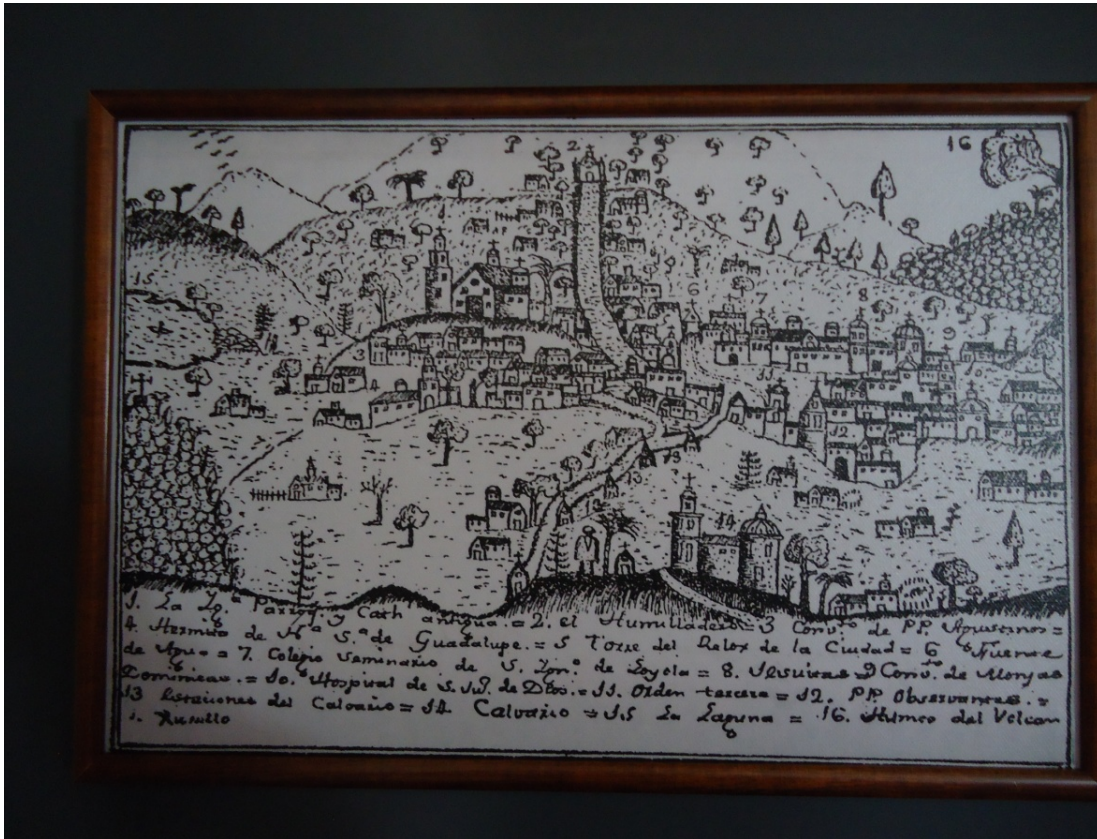 2
16
6
7
8
15
9
3
5
12
13
13
14
1. La Ygª Parroq. y Cath antigua = 2. el Humilladero = 3 Convto de P.P. Agustinos =
4. Hermita de Nª Sª de Guadalupe. = 5 Torre del Relox de la Ciudad = 6 Fuente
de Agua = 7. Colegio Seminario de S. Ygno de Loyola = 8. Jesuitas = 9 Convto de Monjas
Dominicas. = 10. Hospital de S. Jn de Dios = 11. Orden tercera = 12. P.P. Observantes. =
13 Estaciones del Calvario = 14 Calvario = 15 La Laguna = 16. Humeo del Volcan